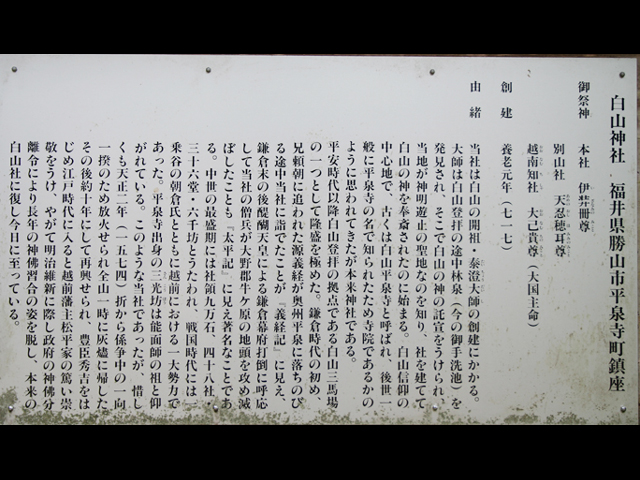 白山神社 福井県勝山市平泉寺町鎮座
御祭神 本社 伊弉冊尊
別山社 天忍穂耳尊
越南知社 大己貴尊（大国主命）
創建 養老元年（七一七）
由緒 当社は白山の開祖・泰澄大師の創建にかかる。
大師は白山登拝の途中林泉（今の御手洗池）を
発見され、そこで白山の神の託宣をうけられ、
当地が神明遊止の聖地なのを知り、社を建てて
白山の神を奉斎されたのに始まる。白山信仰の
中心地で、古くは白山平泉寺と呼ばれ、後世一
般に平泉寺の名で知られたため寺院であるかの
ように思われてきたが本来神社である。
平安時代以降白山登拝の拠点である白山三馬場
の一つとして隆盛を極めた。鎌倉時代の初め、
兄頼朝に追われた源義経が奥州平泉に落ちのび
る途中当社に詣でたことが『義経記』に見え、
鎌倉末の後醍醐天皇による鎌倉幕府打倒に呼応
して当社の僧兵が大野郡牛ケ原の地頭を攻め滅
ぼしたことも『太平記』に見え著名なことであ
る。中世の最盛期には社領九万石、四十八社・
三十六堂・六千坊とうたわれ、戦国時代には一
乗谷の朝倉氏とともに越前における一大勢力で
あった。平泉寺出身の三光坊は能面師の祖と仰
がれている。このような当社であったが、惜し
くも天正二年（一五七四）折から係争中の一向
一揆のため放火せられ全山一時に灰燼に帰した
その後約十年にして再興せられ、豊臣秀吉をは
じめ江戸時代に入ると越前藩主松平家の篤い崇
敬をうけ、やがて明治維新に際し政府の神佛分
離令により長年の神佛習合の姿を脱し、本来の
白山社に復し今日に至っている。